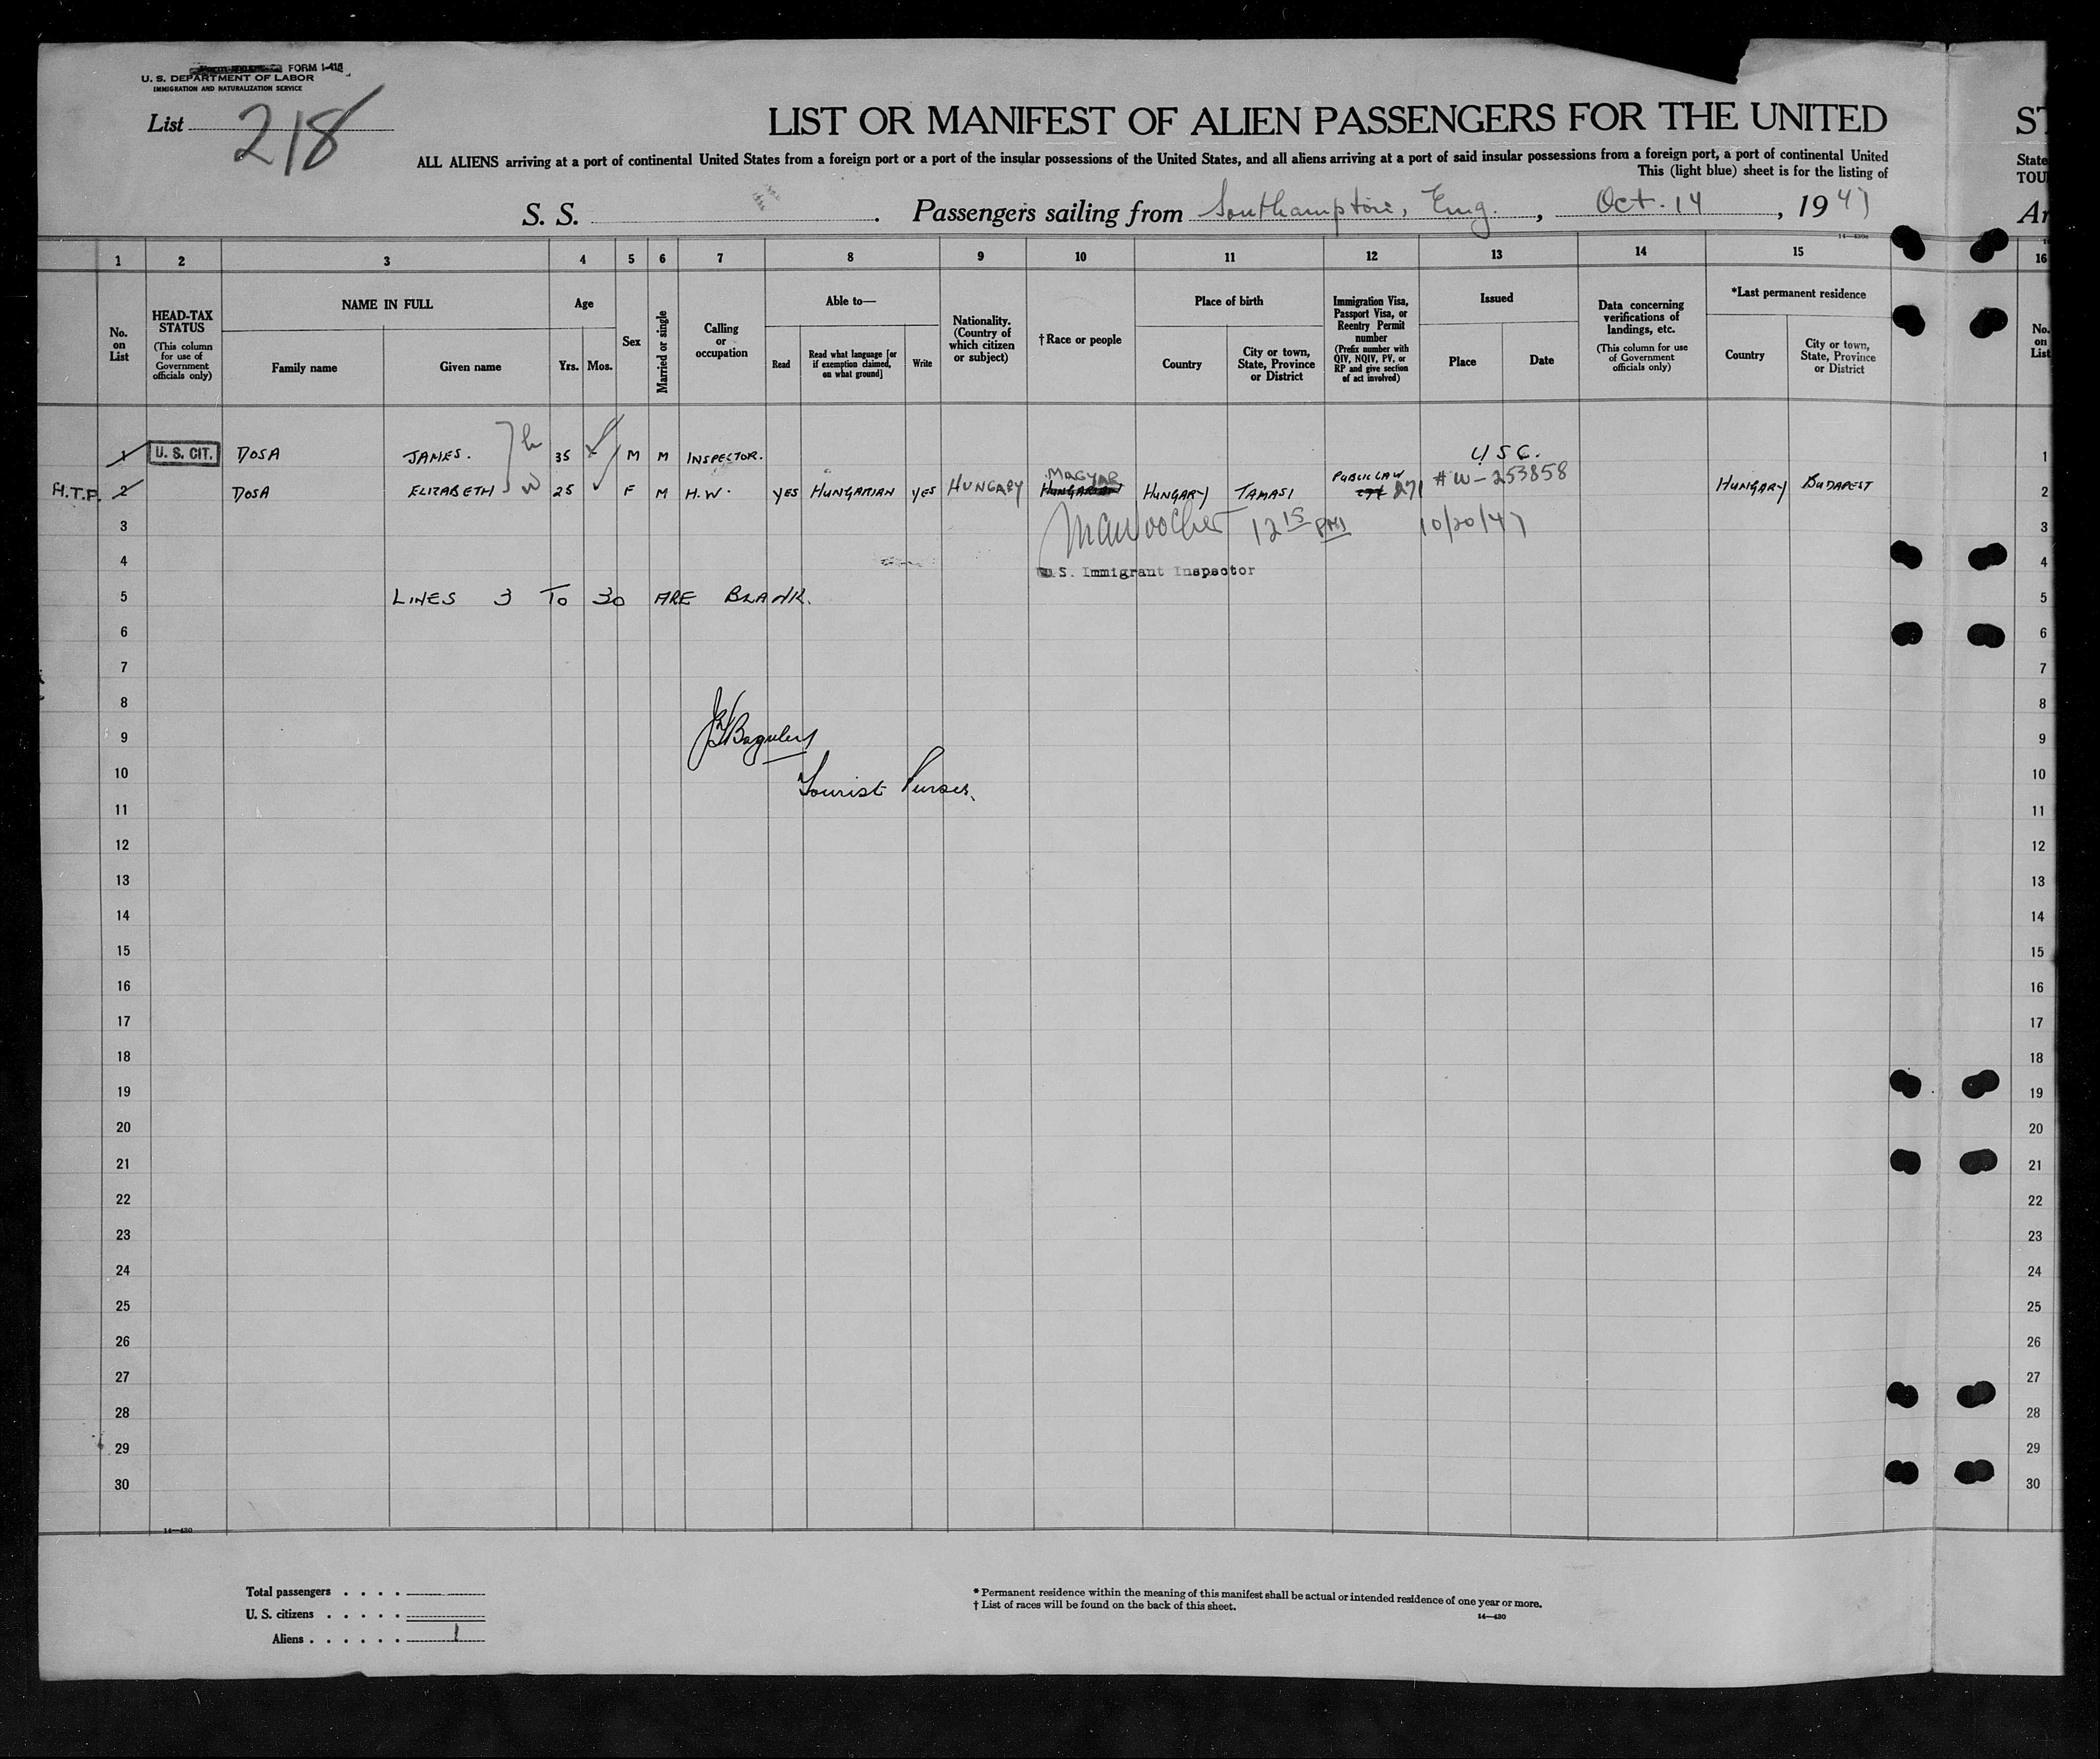 FORM I-418
U. S. DEPARTMENT OF LABOR
IMMIGRATION AND NATURALIZATION SERVICE
List 218
LIST OR MANIFEST OF ALIEN PASSENGERS FOR THE UNITED
ST
ALL ALIENS arriving at a port of continental United States from a foreign port or a port of the insular possessions of the United States, and all aliens arriving at a port of said insular possessions from a foreign port, a port of continental United
State
This (light blue) sheet is for the listing of
TOU
S. S. . Passengers sailing from Southampton, Eng. , Oct. 14 , 1947
Ar
14—430a
1 2 3 4 5 6 7 8 9 10 11 12 13 14 15 16
No. on List
HEAD-TAX STATUS (This column for use of Government officials only)
NAME IN FULL
Family name Given name
Age
Yrs. Mos.
Sex
Married or single
Calling or occupation
Able to—
Read Read what language [or if exemption claimed, on what ground] Write
Nationality. (Country of which citizen or subject)
†Race or people
Place of birth
Country City or town, State, Province or District
Immigration Visa, Passport Visa, or Reentry Permit number (Prefix number with QIV, NQIV, PV, or RP and give section of act involved)
Issued
Place Date
Data concerning verifications of landings, etc. (This column for use of Government officials only)
*Last permanent residence
Country City or town, State, Province or District
No. on List
1 U. S. CIT. DOSA JAMES. h 35 M M INSPECTOR. U S C. 1
H.T.P. 2 DOSA ELIZABETH w 25 F M H.W. YES HUNGARIAN YES HUNGARY MAGYAR HUNGARIAN HUNGARY TAMASI PUBLIC LAW 271 # W-253858 HUNGARY BUDAPEST 2
3 12 15 PM 10/20/47 3
4 U. S. Immigrant Inspector 4
5 LINES 3 TO 30 ARE BLANK. 5
6 6
7 7
8 8
9 9
10 Tourist Purser. 10
11 11
12 12
13 13
14 14
15 15
16 16
17 17
18 18
19 19
20 20
21 21
22 22
23 23
24 24
25 25
26 26
27 27
28 28
29 29
30 30
14—430
Total passengers . . . .
U. S. citizens . . . . .
Aliens . . . . . . 1
* Permanent residence within the meaning of this manifest shall be actual or intended residence of one year or more.
† List of races will be found on the back of this sheet.
14—430